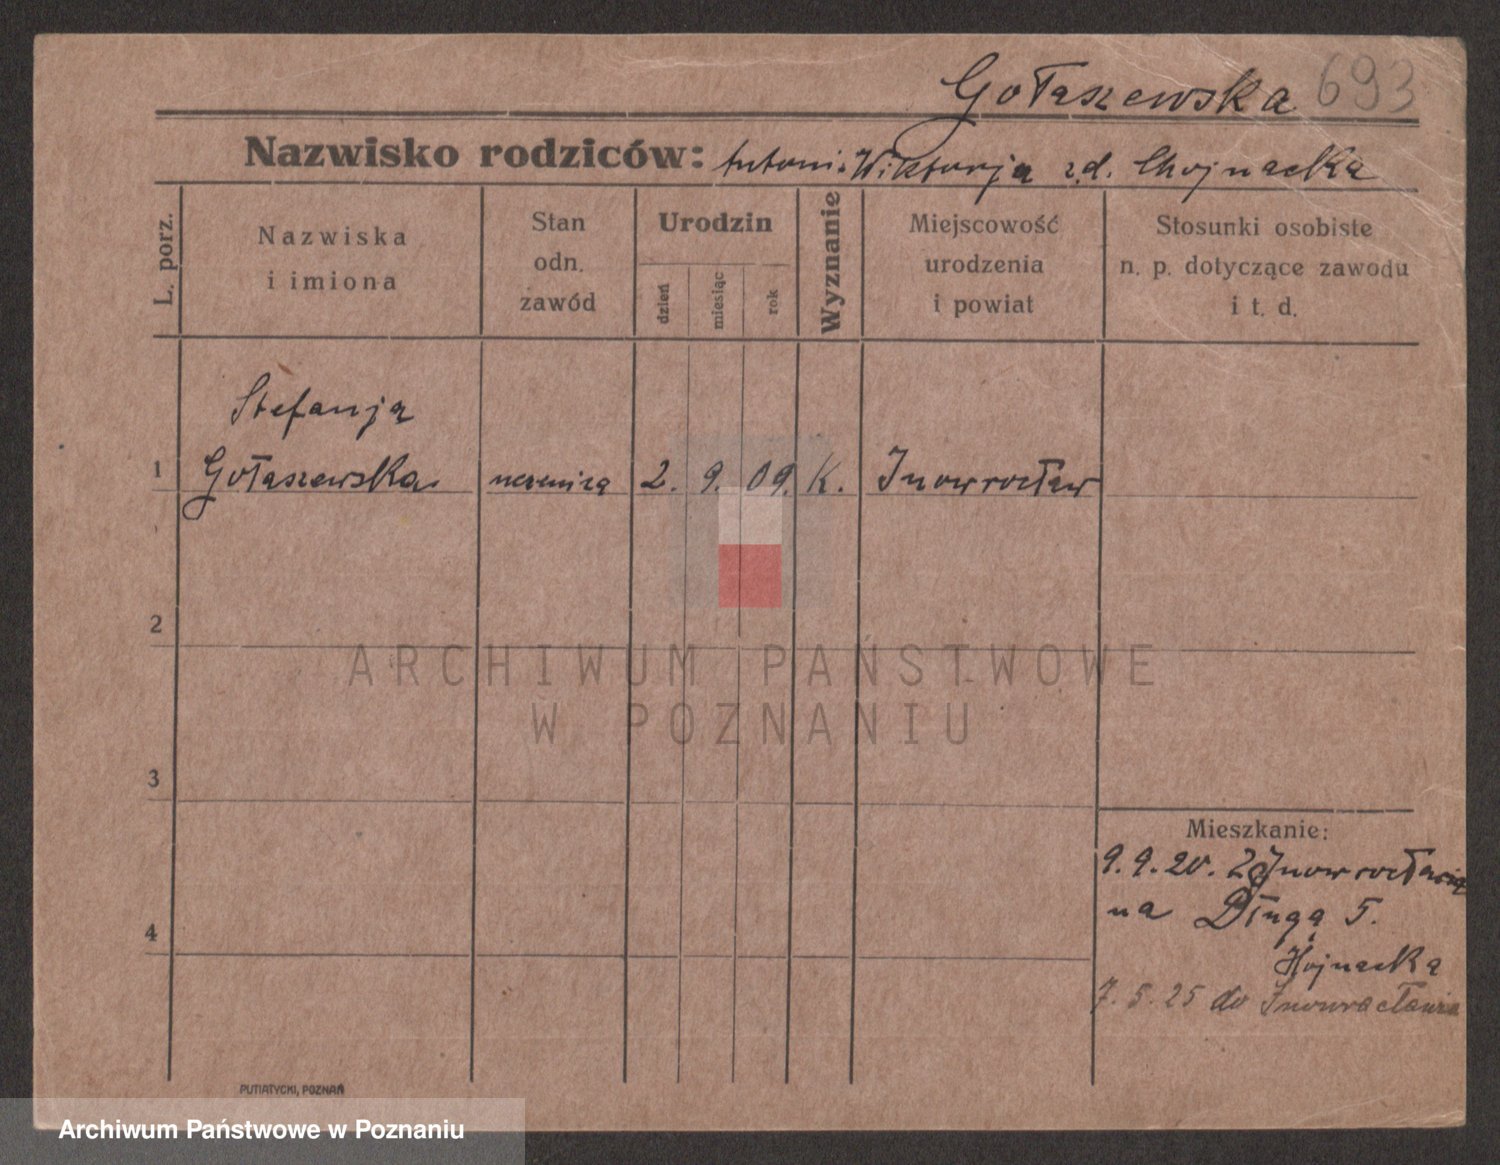 Gołaszewska 693
Nazwisko rodziców: Antoni. Wiktorja zd. Chojnacka
L. porz.
Nazwiska
i imiona
Stan
odn.
zawód
Urodzin
dzień
miesiąc
rok
Wyznanie
Miejscowość
urodzenia
i powiat
Stosunki osobiste
n. p. dotyczące zawodu
i t. d.
Stefanja
1 Gołaszewska uczenica 2. 9. 09. K. Inowrocław
2
ARCHIWUM PAŃSTWOWE
W POZNANIU
3
Mieszkanie:
9.9.20. Z Inowrocławia
na Długą 5.
4
Hojnacka
7.5.25 do Inowracławia
PUTIATYCKI, POZNAŃ
Archiwum Państwowe w Poznaniu